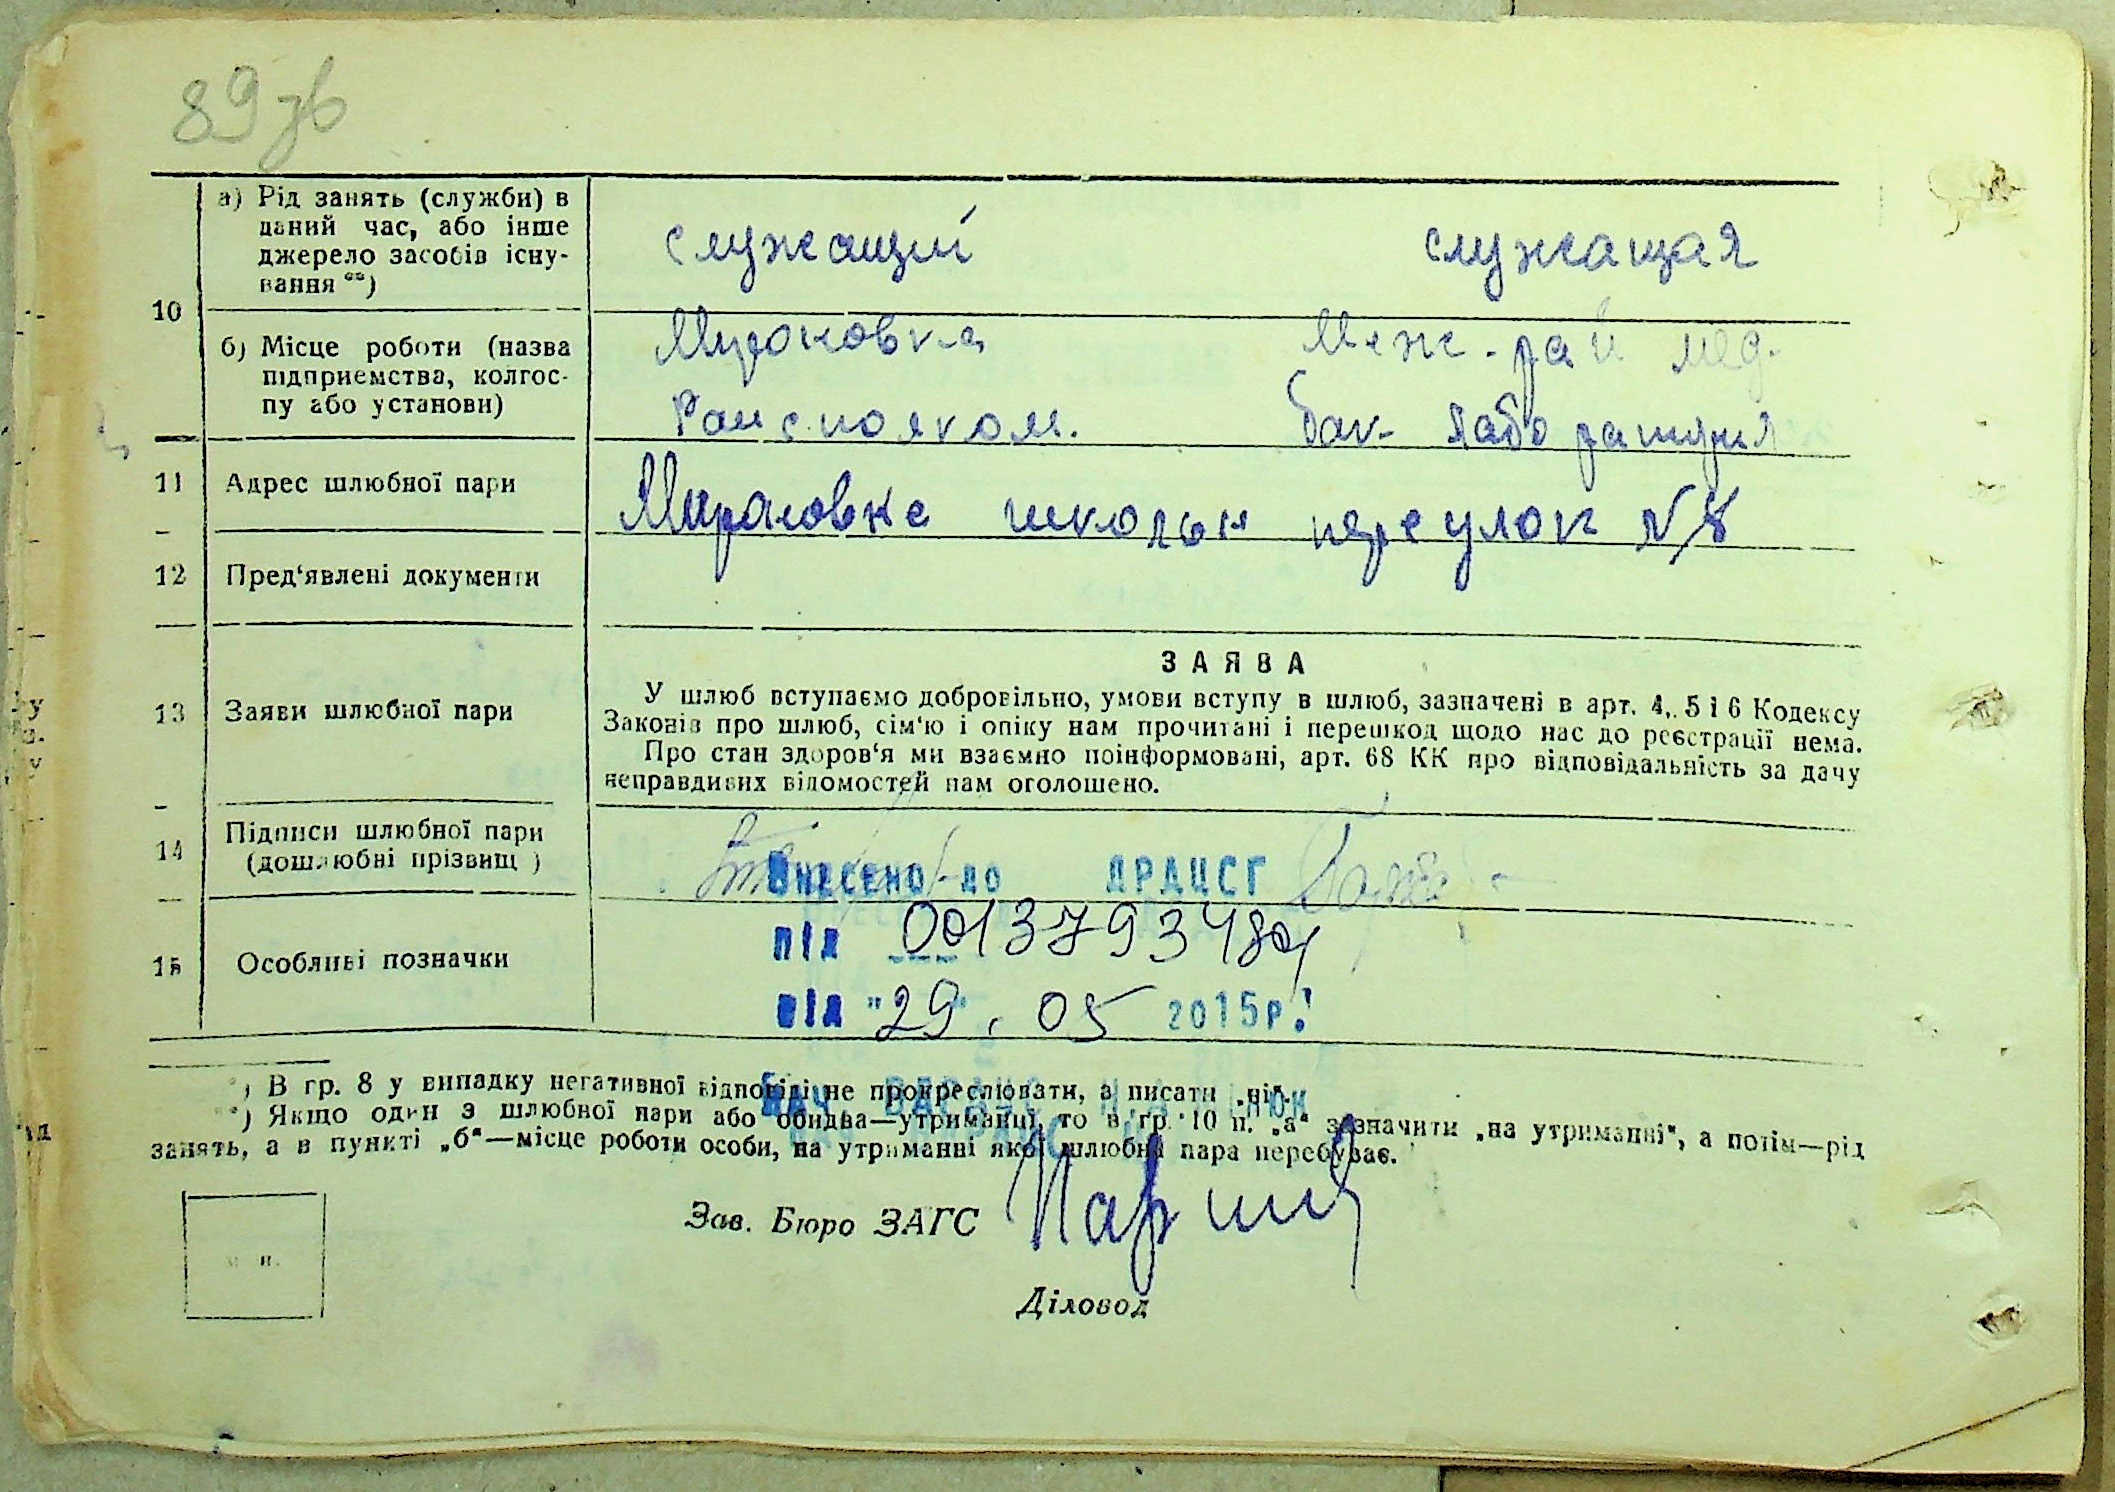 89 зв
10
а) Рід занять (служби) в
даний час, або інше
джерело засобів існу-
вання **)
служащий служащая
б) Місце роботи (назва
підприємства, колгос-
пу або установи)
Мироновка Меж-рай мед.
бак-
11 Адрес шлюбної пари
школьн переулок №8
12 Пред'явлені документи
13 Заяви шлюбної пари
ЗАЯВА
У шлюб вступаємо добровільно, умови вступу в шлюб, зазначені в арт. 4, 5 і 6 Кодексу
Законів про шлюб, сім'ю і опіку нам прочитані і перешкод щодо нас до реєстрації нема.
Про стан здоров'я ми взаємно поінформовані, арт. 68 КК про відповідальність за дачу
неправдивих відомостей нам оголошено.
14 Підписи шлюбної пари
(дошлюбні прізвищ )
ВНЕСЕНО до ДРАЦСГ
15 Особливі позначки
від "29". 05 2015р.
*) В гр. 8 у випадку негативної відповіді не прокреслювати, а писати „ні“.
**) Якщо один з шлюбної пари або обидва—утриманці, то в гр. 10 п. „а“ зазначити „на утриманні“, а потім—рід
занять, а в пункті „б“—місце роботи особи, на утриманні якої шлюбна пара перебуває.
Зав. Бюро ЗАГС
м п.
Діловод